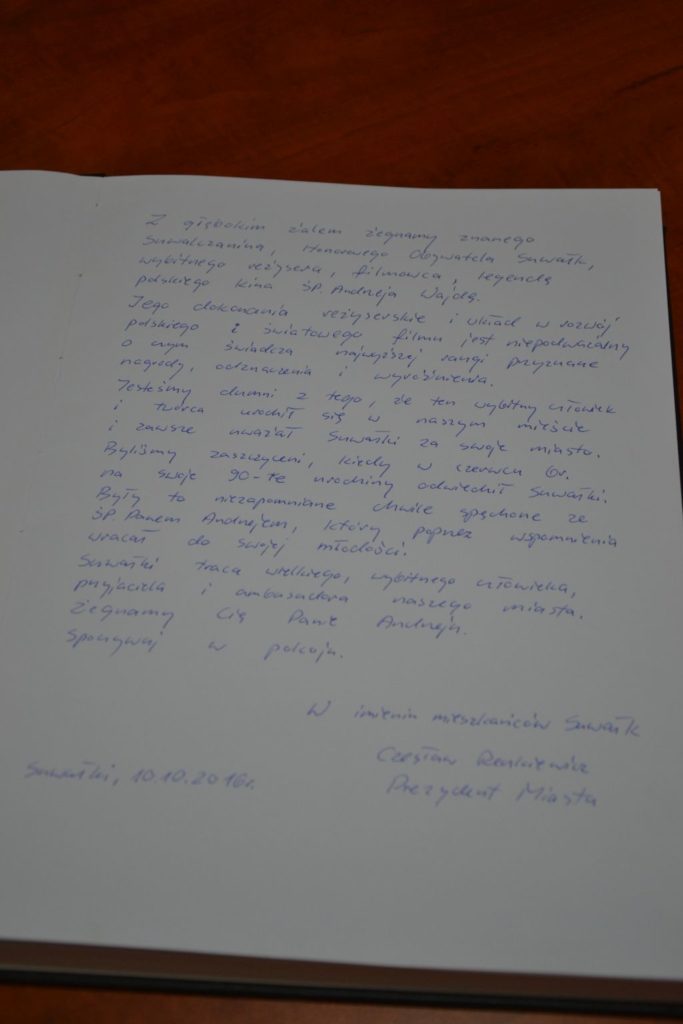 Z głębokim żalem żegnamy znanego
Suwalczanina, Honorowego Obywatela Suwałk,
wybitnego reżysera, filmowca, legendę
polskiego kina ŚP. Andrzeja Wajdę.
Jego dokonania reżyserskie i wkład w rozwój
polskiego i światowego filmu jest niepodważalny
o czym świadczą najwyższej rangi przyznane
nagrody, odznaczenia i wyróżnienia.
Jesteśmy dumni z tego, że ten wybitny człowiek
i twórca urodził się w naszym mieście
i zawsze uważał Suwałki za swoje miasto.
Byliśmy zaszczyceni, kiedy w czerwcu br.
na swoje 90-te urodziny odwiedził Suwałki.
Były to niezapomniane chwile spędzone ze
ŚP. Panem Andrzejem, który poprzez wspomnienia
wracał do swojej młodości.
Suwałki tracą wielkiego, wybitnego człowieka,
przyjaciela i ambasadora naszego miasta.
Żegnamy Cię Panie Andrzeju.
Spoczywaj w pokoju.
W imieniu mieszkańców Suwałk
Czesław Renkiewicz
Suwałki, 10.10.2016r. Prezydent Miasta